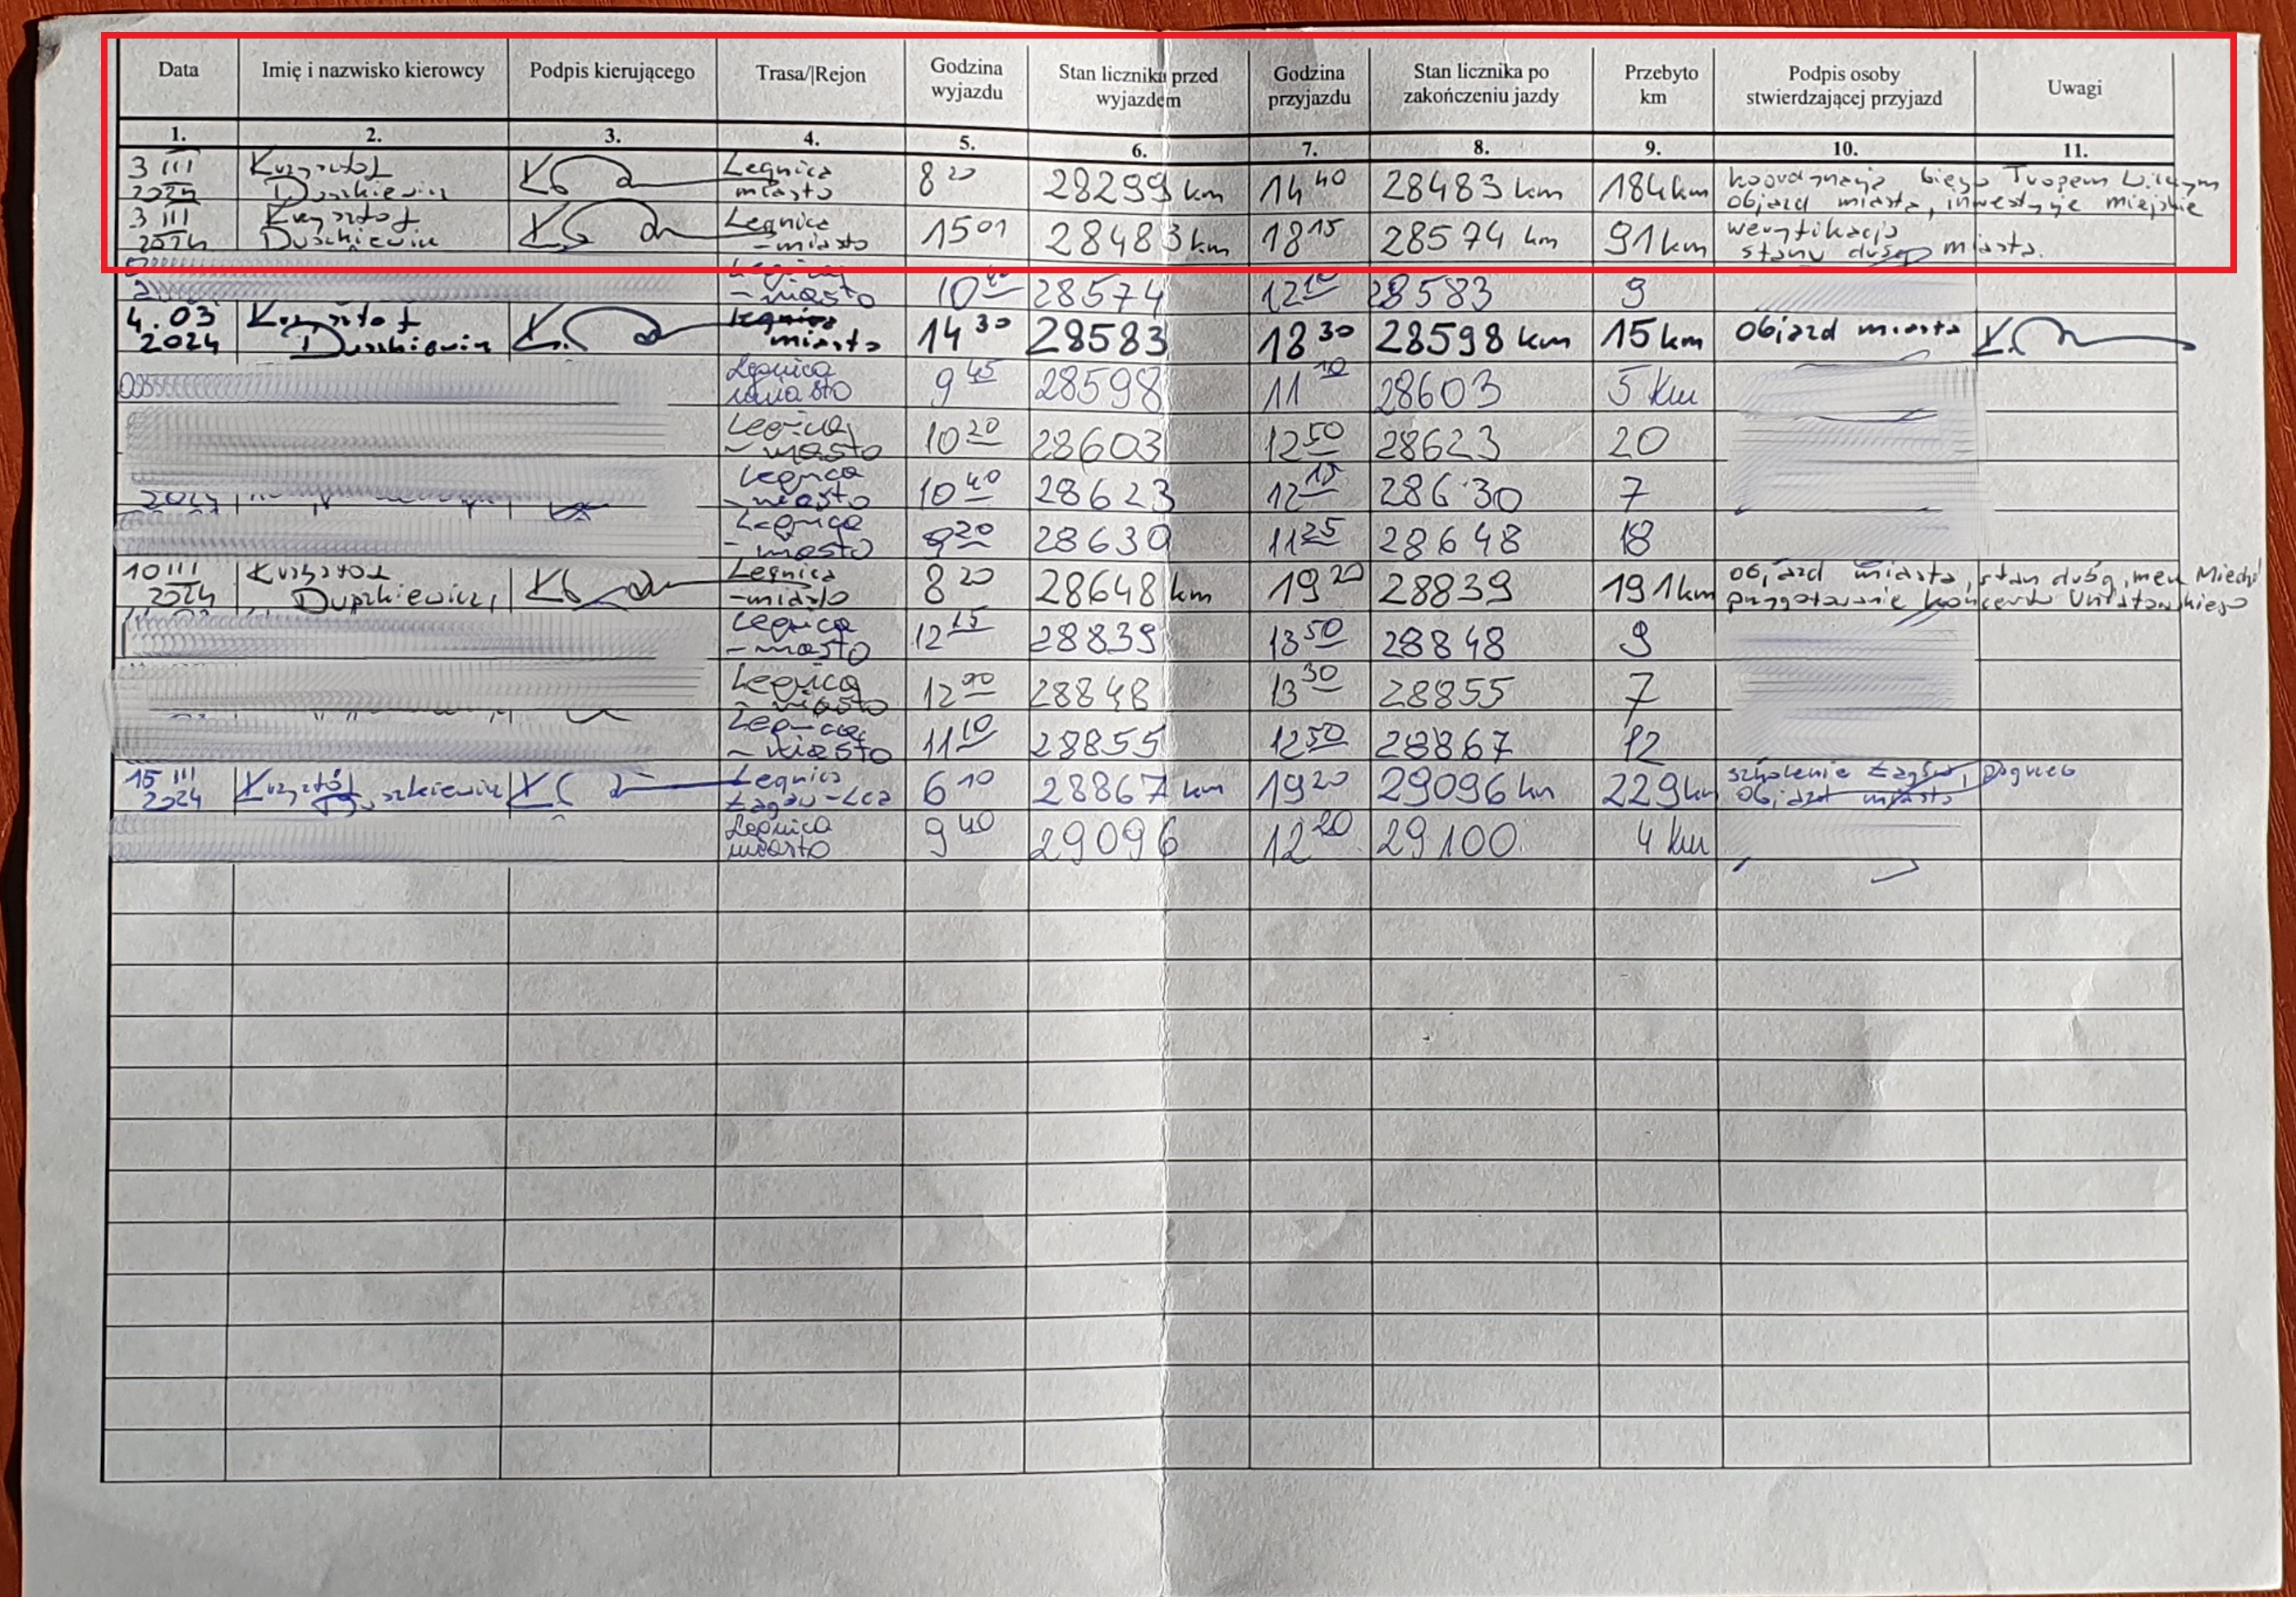 Data Imię i nazwisko kierowcy Podpis kierującego Trasa/|Rejon Godzina wyjazdu Stan licznika przed wyjazdem Godzina przyjazdu Stan licznika po zakończeniu jazdy Przebyto km Podpis osoby stwierdzającej przyjazd Uwagi
1. 2. 3. 4. 5. 6. 7. 8. 9. 10. 11.
3 III 2024 Krzysztof Duszkiewicz Legnica miasto 8 20 28299 km 14 40 28483 km 184 km koordynacja biegu Tropem Wilczym objazd miasta, inwestycje miejskie
3 III 2024 Krzysztof Duszkiewicz Legnica - miasto 15 01 28483 km 18 15 28574 km 91 km weryfikacja stanu dróg miasta.
Legnica - miasto 10 28574 12 28583 9
4.03 2024 Krzysztof Duszkiewicz Legnica miasto 14 30 28583 18 30 28598 km 15 km Objazd miasta
Legnica miasto 9 45 28598 11 10 28603 5 km
Legnica - miasto 10 20 28603 12 50 28623 20
2024 Legnica - miasto 10 40 28623 12 15 28630 7
Legnica - miasto 9 20 28630 11 25 28648 18
10 III 2024 Krzysztof Duszkiewicz Legnica - miasto 8 20 28648 km 19 20 28839 191 km objazd miasta, stan dróg, przygotowanie koncertu
Legnica - miasto 12 15 28839 13 50 28848 9
Legnica - miasto 12 00 28848 13 30 28855 7
Legnica - miasto 11 10 28855 12 50 28867 12
15 III 2024 Krzysztof Duszkiewicz Legnica Łagów - Lca 6 10 28867 km 19 20 29096 km 229 km szkolenie Łagów, objazd miasta
Legnica miasto 9 40 29096 12 20 29100 4 km